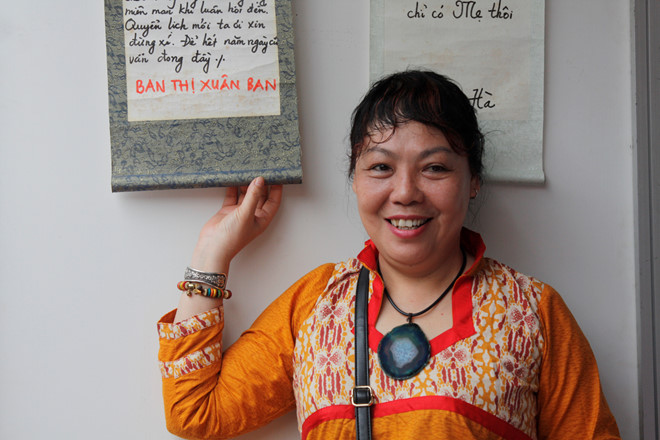 miên man khi luân hồi đến.
Quyển lịch mỗi ta đi xin
đừng xó. Để hết năm ngày cũ
vẫn đong đầy /.
BAN THỊ XUÂN BAN
chỉ có Mẹ thôi
Hà